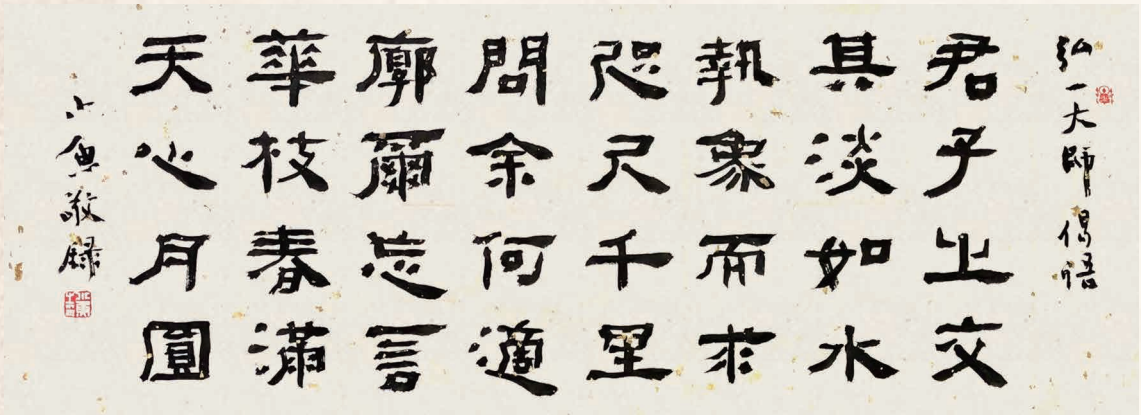 弘一大師偈語
君子之交
其淡如水
執象而求
咫尺千里
問余何適
廓爾忘言
華枝春滿
天心月圓
敬錄